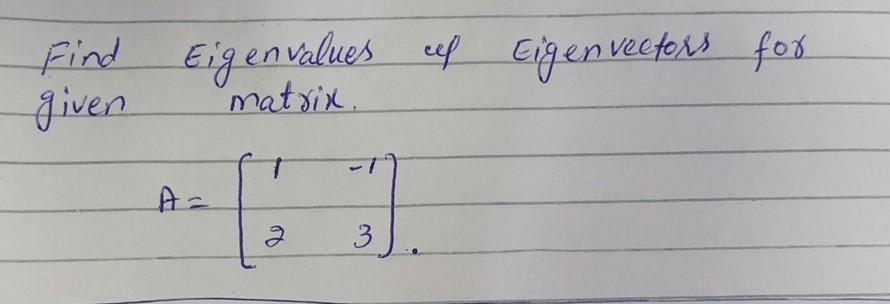 Find Eigenvalues of Eigenvectors for
given matrix.
A = [ 1 -1
2 3 ].